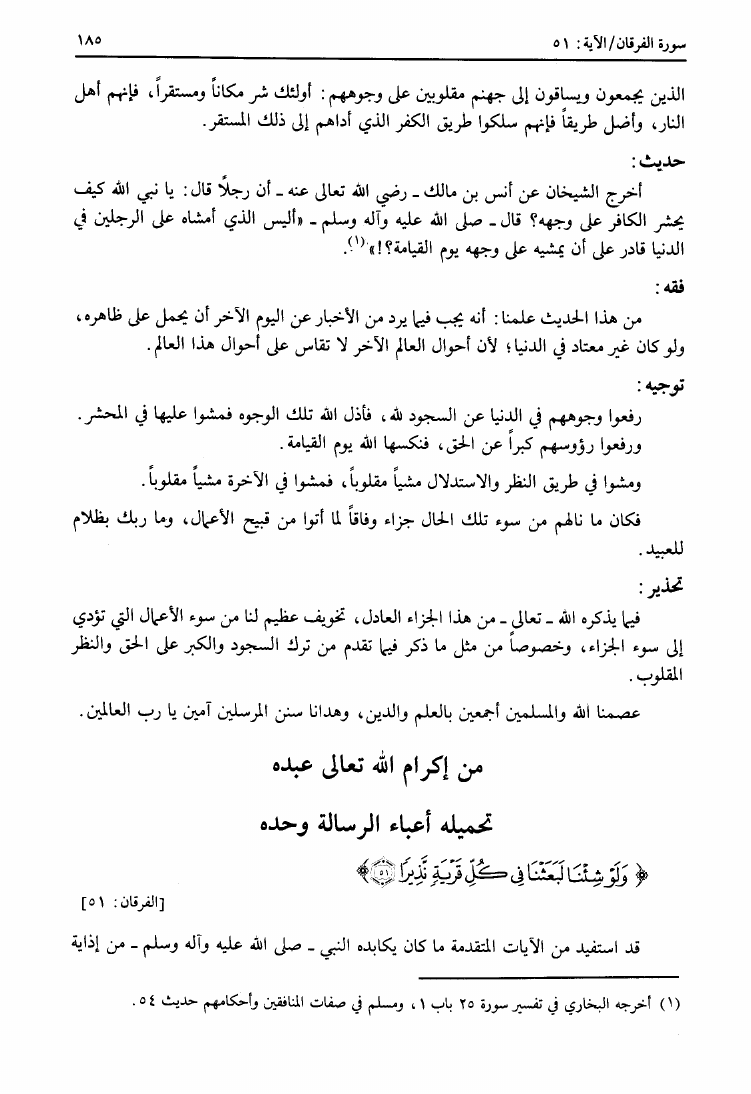 سورة الفرقان/الآية: ٥١ ١٨٥
الذين يجمعون ويساقون إلى جهنم مقلوبين على وجوههم: أولئك شر مكاناً ومستقراً، فإنهم أهل
النار، وأضل طريقاً فإنهم سلكوا طريق الكفر الذي أداهم إلى ذلك المستقر.
حديث:
أخرج الشيخان عن أنس بن مالك ـ رضي الله تعالى عنه ـ أن رجلًا قال: يا نبي الله كيف
يحشر الكافر على وجهه؟ قال ـ صلى الله عليه وآله وسلم ـ «أليس الذي أمشاه على الرجلين في
الدنيا قادر على أن يمشيه على وجهه يوم القيامة؟!»(١).
فقه:
من هذا الحديث علمنا: أنه يجب فيما يرد من الأخبار عن اليوم الآخر أن يحمل على ظاهره،
ولو كان غير معتاد في الدنيا؛ لأن أحوال العالم الآخر لا تقاس على أحوال هذا العالم.
توجيه:
رفعوا وجوههم في الدنيا عن السجود لله، فأذل الله تلك الوجوه فمشوا عليها في المحشر.
ورفعوا رؤوسهم كبراً عن الحق، فنكسها الله يوم القيامة.
ومشوا في طريق النظر والاستدلال مشياً مقلوباً، فمشوا في الآخرة مشياً مقلوباً.
فكان ما نالهم من سوء تلك الحال جزاء وفاقاً لما أتوا من قبيح الأعمال، وما ربك بظلام
للعبيد.
تحذير:
فيما يذكره الله ـ تعالى ـ من هذا الجزاء العادل، تخويف عظيم لنا من سوء الأعمال التي تؤدي
إلى سوء الجزاء، وخصوصاً من مثل ما ذكر فيما تقدم من ترك السجود والكبر على الحق والنظر
المقلوب.
عصمنا الله والمسلمين أجمعين بالعلم والدين، وهدانا سنن المرسلين آمين يا رب العالمين.
من إكرام الله تعالى عبده
تحميله أعباء الرسالة وحده
﴿ وَلَوْ شِئْنَا لَبَعَثْنَا فِي كُلِّ قَرْيَةٍ نَّذِيرًا ٥١ ﴾
[الفرقان: ٥١]
قد استفيد من الآيات المتقدمة ما كان يكابده النبي ـ صلى الله عليه وآله وسلم ـ من إذاية
(١) أخرجه البخاري في تفسير سورة ٢٥ باب ١، ومسلم في صفات المنافقين وأحكامهم حديث ٥٤.